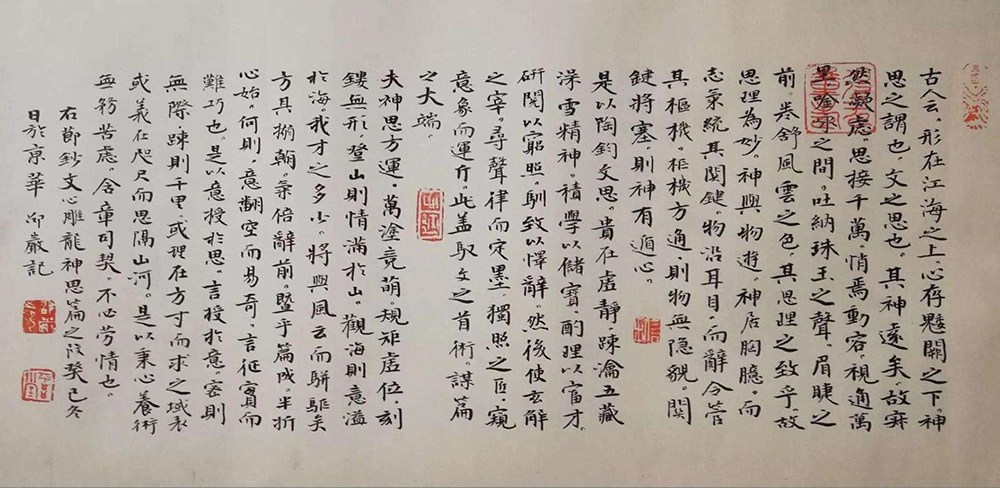 古人云。形在江海之上。心存魏闕之下。神
思之謂也。文之思也。其神遠矣。故寂
然凝慮。思接千萬。悄焉動容。視通萬
里。吟詠之間。吐納珠玉之聲。眉睫之
前。卷舒風雲之色。其思理之致乎。故
思理為妙。神與物遊。神居胸臆。而
志氣統其關鍵。物沿耳目。而辭令管
其樞機。樞機方通。則物無隱貌。關
鍵將塞。則神有遁心。
是以陶鈞文思。貴在虛靜。疎瀹五藏
澡雪精神。積學以儲寶。酌理以富才。
研閱以窮照。馴致以懌辭。然後使玄解
之宰。尋聲律而定墨。獨照之匠。窺
意象而運斤。此蓋馭文之首術謀篇
之大端
夫神思方運。萬塗競萌。規矩虛位。刻
鏤無形。登山則情滿於山。觀海則意溢
於海。我才之多少。將與風云而駢驅矣
方其搦翰。氣倍辭前。暨乎篇成。半折
心始。何則。意翻空而易奇。言征實而
難巧也。是以意授於思。言授於意。密則
無際。踈則千里。或理在方寸而求之域表
或義在咫尺而思隔山河。是以秉心養術
無務苦慮。含章司契。不必勞情也。
右節鈔文心雕龍神思篇之段癸己冬
日於京華 嚴記